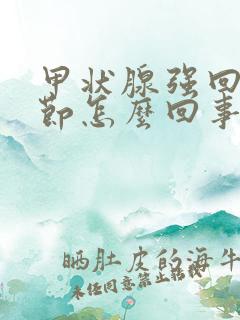 甲状腺强回
节怎么回事
晒肚皮的海牛
未任同意禁止转载